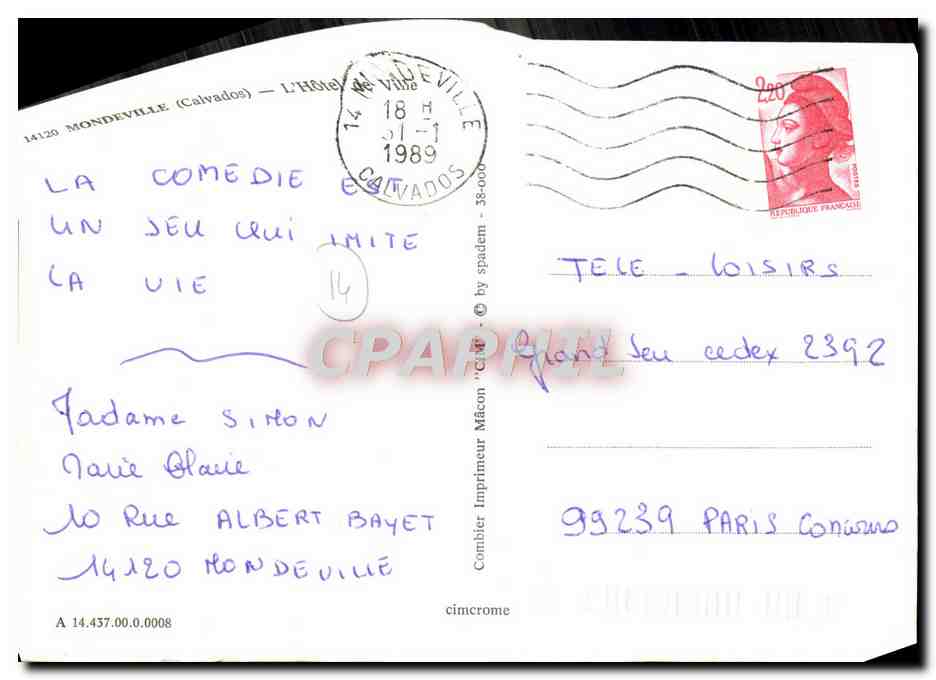 14120 MONDEVILLE (Calvados) — L'Hôtel de Ville
14 MONDEVILLE
18 H
31-1
1989
CALVADOS
2,20
POSTES
REPUBLIQUE FRANÇAISE
LA COMEDIE EST
UN JEU QUI IMITE
LA VIE
14
Madame SIMON
Marie Claire
10 Rue ALBERT BAYET
14120 MONDEVILLE
A 14.437.00.0.0008
Combier Imprimeur Mâcon "CIM" - © by spadem - 38-000
cimcrome
TELE - LOISIRS
Grand Jeu cedex 2392
99239 PARIS Concours
CPAPHIL